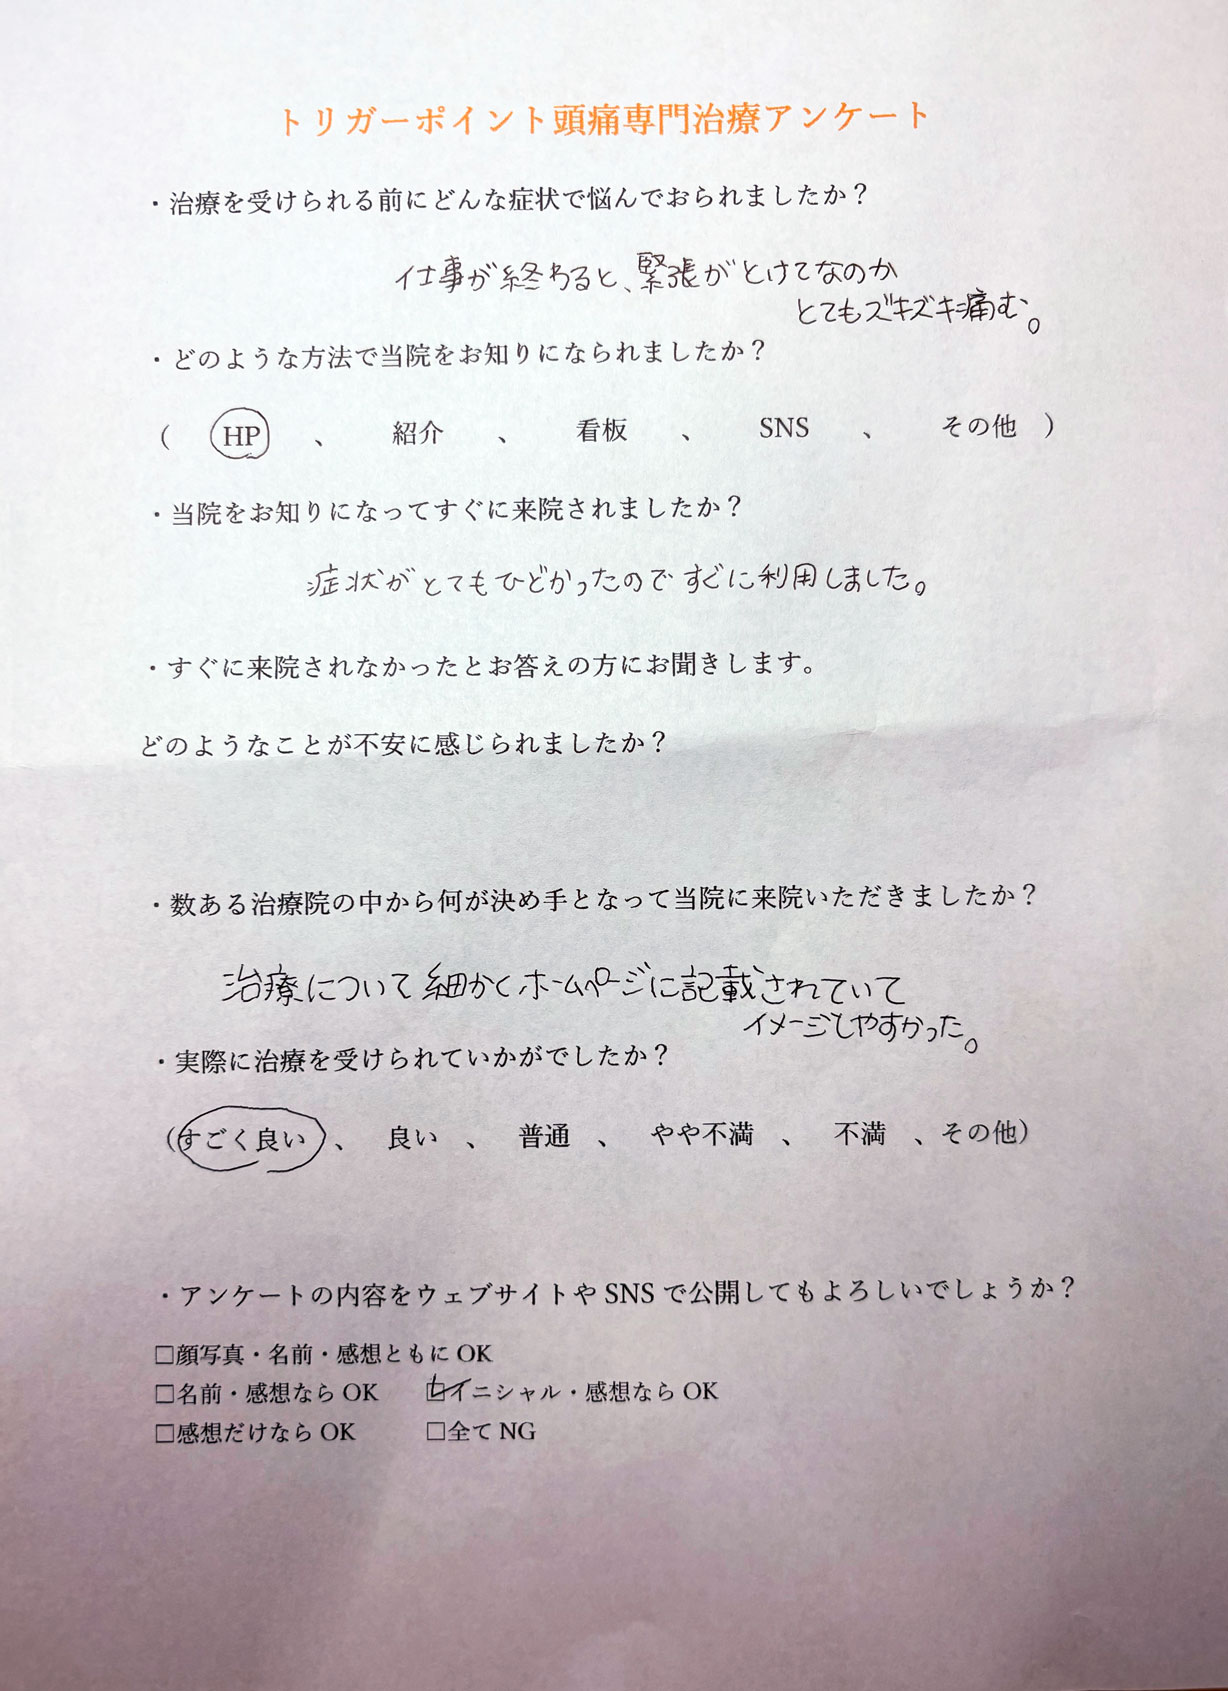 トリガーポイント頭痛専門治療アンケート
・治療を受けられる前にどんな症状で悩んでおられましたか？
仕事が終わると、緊張がとけてなのか
とてもズキズキ痛む。
・どのような方法で当院をお知りになられましたか？
（ HP 、 紹介 、 看板 、 SNS 、 その他 ）
・当院をお知りになってすぐに来院されましたか？
症状がとてもひどかったのですぐに利用しました。
・すぐに来院されなかったとお答えの方にお聞きします。
どのようなことが不安に感じられましたか？
・数ある治療院の中から何が決め手となって当院に来院いただきましたか？
治療について細かくホームページに記載されていて
イメージしやすかった。
・実際に治療を受けられていかがでしたか？
（すごく良い 、 良い 、 普通 、 やや不満 、 不満 、その他）
・アンケートの内容をウェブサイトや SNS で公開してもよろしいでしょうか？
□顔写真・名前・感想ともに OK
□名前・感想なら OK ☑イニシャル・感想なら OK
□感想だけなら OK □全て NG